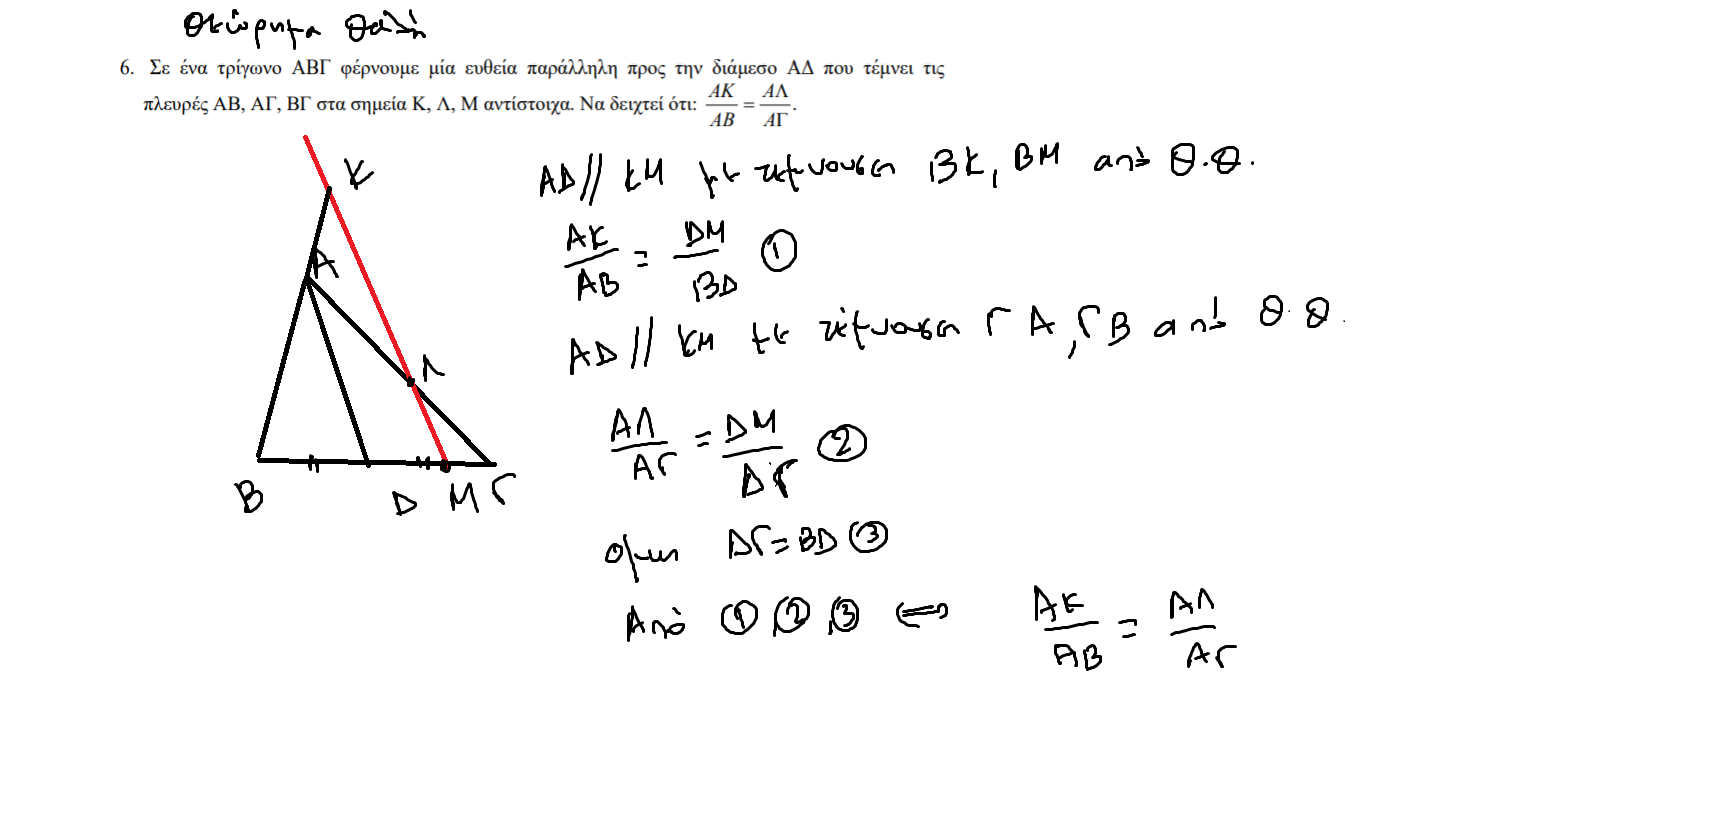 Θεώρημα Θαλή
6. Σε ένα τρίγωνο ΑΒΓ φέρνουμε μία ευθεία παράλληλη προς την διάμεσο ΑΔ που τέμνει τις
πλευρές ΑΒ, ΑΓ, ΒΓ στα σημεία Κ, Λ, Μ αντίστοιχα. Να δειχτεί ότι: ΑΚ/ΑΒ = ΑΛ/ΑΓ.
Κ
Α
Λ
Β Δ Μ Γ
ΑΔ // ΚΜ με τέμνουσες ΒΚ, ΒΜ από Θ.Θ.
ΑΚ/ΑΒ = ΔΜ/ΒΔ ①
ΑΔ // ΚΜ με τέμνουσες ΓΑ, ΓΒ από Θ.Θ.
ΑΛ/ΑΓ = ΔΜ/ΔΓ ②
όμως ΔΓ = ΒΔ ③
Από ①, ②, ③ ⇔ ΑΚ/ΑΒ = ΑΛ/ΑΓ